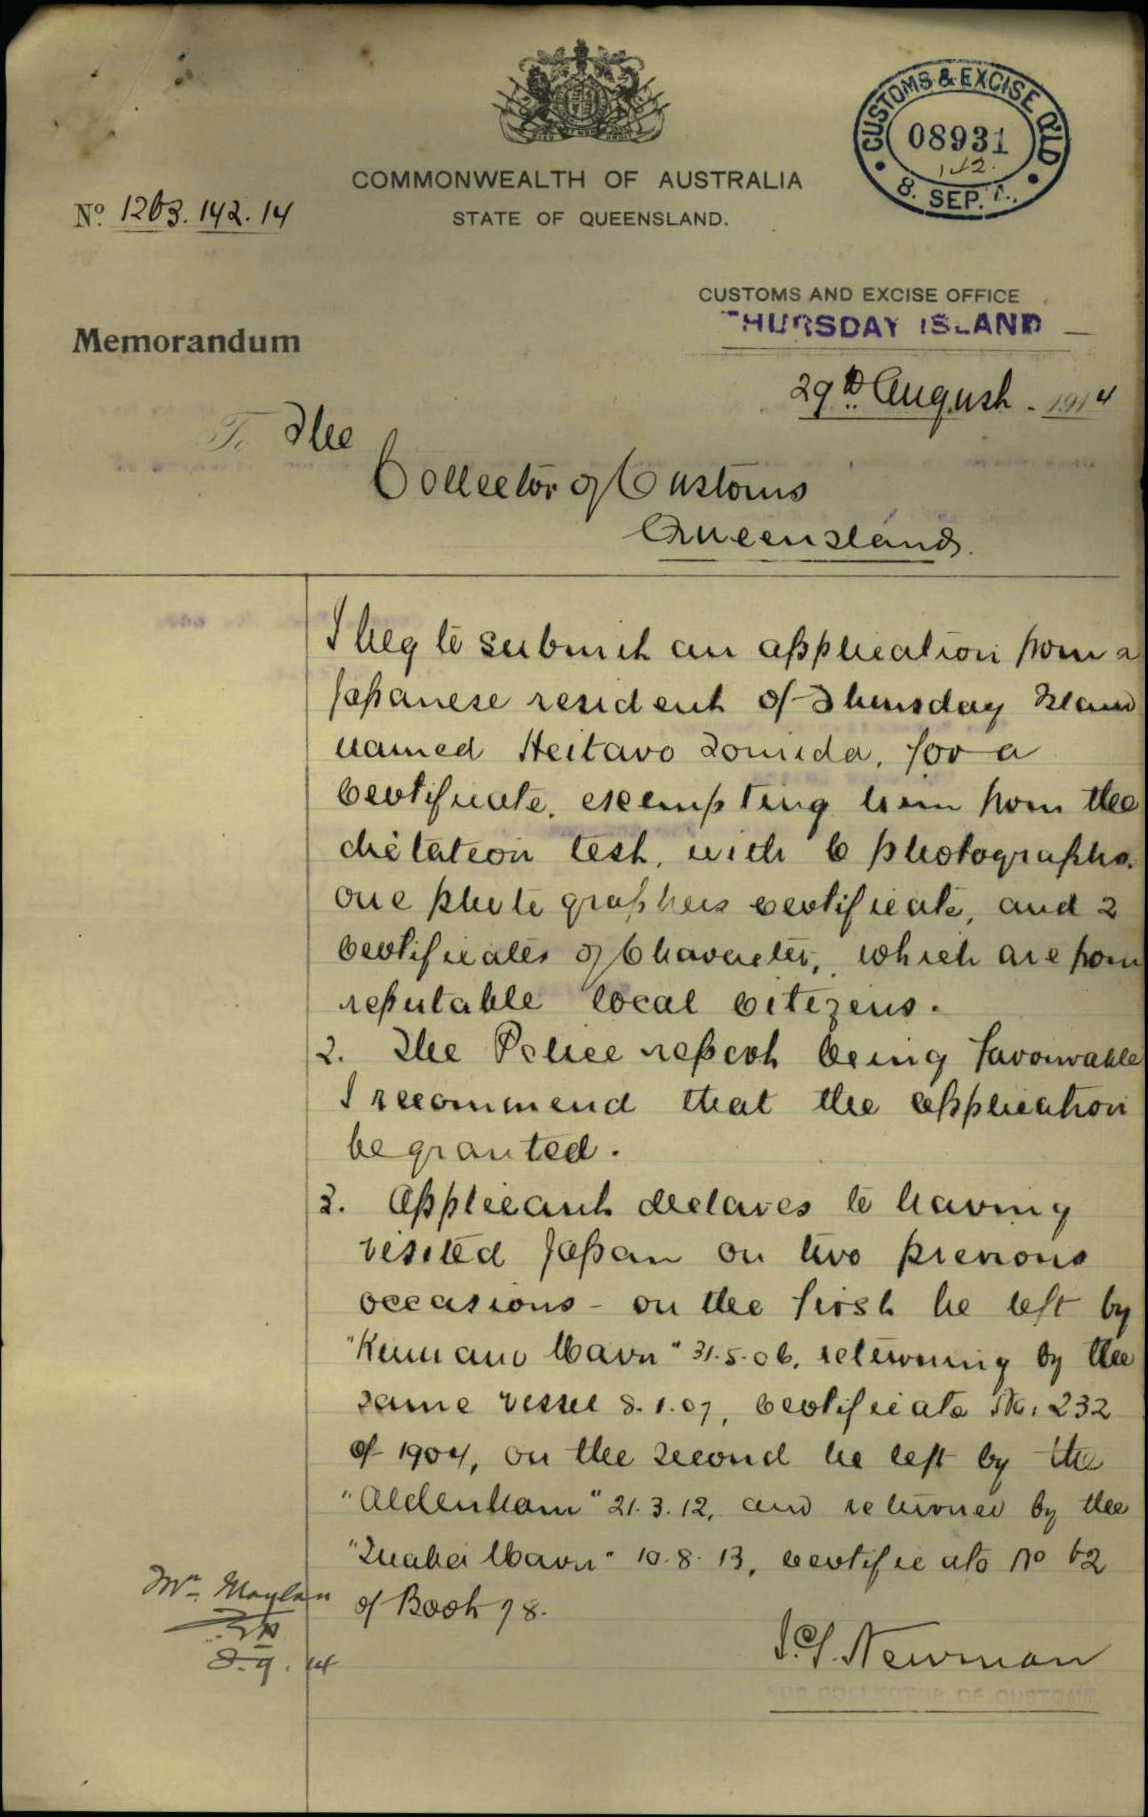 CUSTOMS & EXCISE Q'LD
08931
8. SEP.
COMMONWEALTH OF AUSTRALIA
STATE OF QUEENSLAND.
No. 1263.142.14
CUSTOMS AND EXCISE OFFICE
THURSDAY ISLAND
Memorandum
29th August. 1914
To The
Collector of Customs
Queensland.
I beg to submit an application from a
Japanese resident of Thursday Island
named Heitaro Tomida, for a
Certificate, exempting him from the
dictation test, with 6 photographs,
one photographers certificate, and 2
Certificates of Character, which are from
reputable local citizens.
2. The Police report being favourable
I recommend that the application
be granted.
3. Applicant declares to having
visited Japan on two previous
occasions - on the first he left by
"Kumano Maru" 31.5.06, returning by the
same vessel 8.1.07, Certificate No. 232
of 1904, on the second he left by the
"Aldenham" 21.3.12, and returned by the
Maru" 10.8.13, certificate No 62
of Book 78.
Mr. Moylan
8.9.14
Newman
FOR COLLECTOR OF CUSTOMS